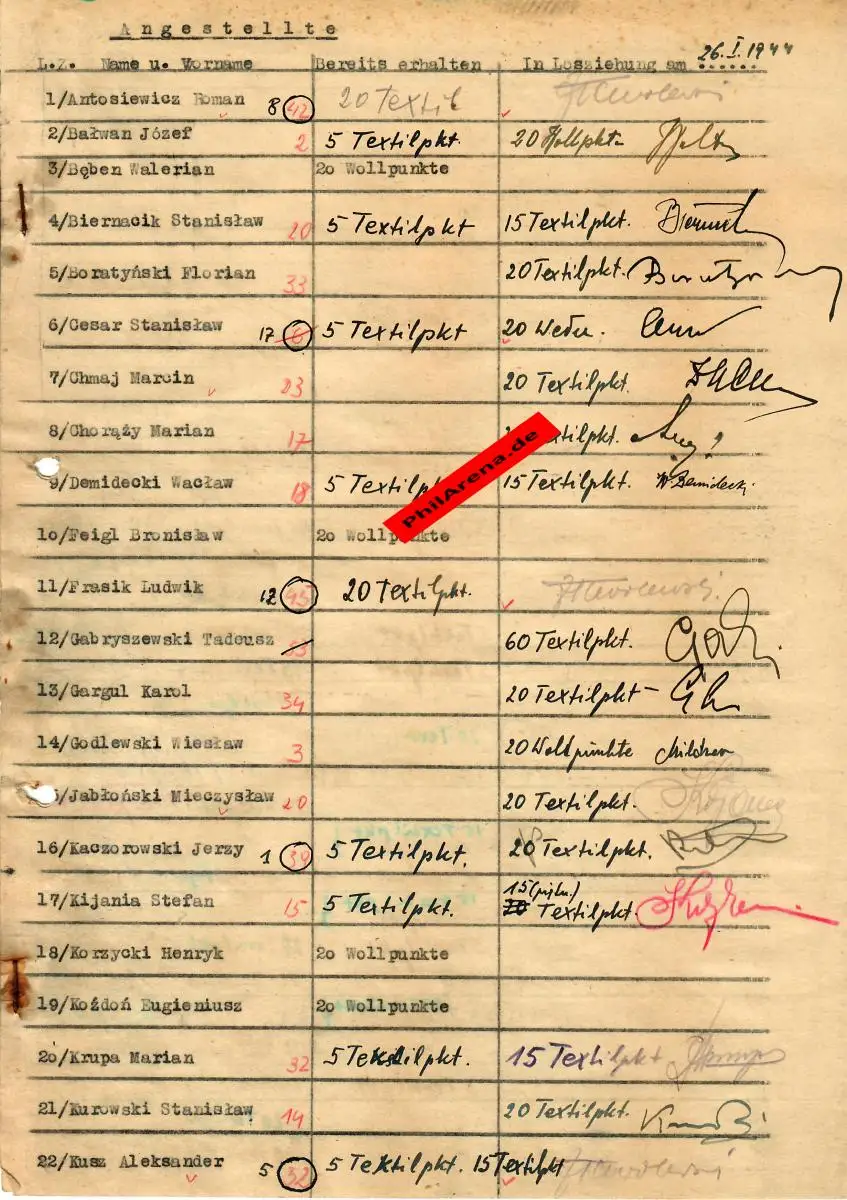 Angestellte
L.Z. Name u. Vorname Bereits erhalten In Losziehung am 26.I.1944
1/Antosiewicz Roman 8 42 20 Textil
2/Bałwan Józef 2 5 Textilpkt. 20
3/Bęben Walerian 2o Wollpunkte
4/Biernacik Stanisław 20 5 Textilpkt 15 Textilpkt.
5/Boratyński Florian 33 20 Textilpkt.
6/Cesar Stanisław 17 6 5 Textilpkt 20
7/Chmaj Marcin 23 20 Textilpkt.
8/Chorąży Marian 17
9/Demidecki Wacław 18 5 15 Textilpkt. W Demidecki
PhilArena.de
1o/Feigl Bronisław 2o Wollpunkte
11/Frasik Ludwik 12 45 20 Textilpkt.
12/Gabryszewski Tadeusz 60 Textilpkt.
13/Gargul Karol 34 20 Textilpkt
14/Godlewski Wiesław 3 20 Wollpunkte
15/Jabłoński Mieczysław 20 20 Textilpkt.
16/Kaczorowski Jerzy 1 39 5 Textilpkt. 20 Textilpkt.
17/Kijania Stefan 15 5 Textilpkt. 15 20 Textilpkt.
18/Korzycki Henryk 2o Wollpunkte
19/Koźdoń Eugieniusz 2o Wollpunkte
2o/Krupa Marian 32 5 Textilpkt. 15 Textilpkt
21/Kurowski Stanisław 14 20 Textilpkt.
22/Kusz Aleksander 5 32 5 Textilpkt. 15 Textilpkt